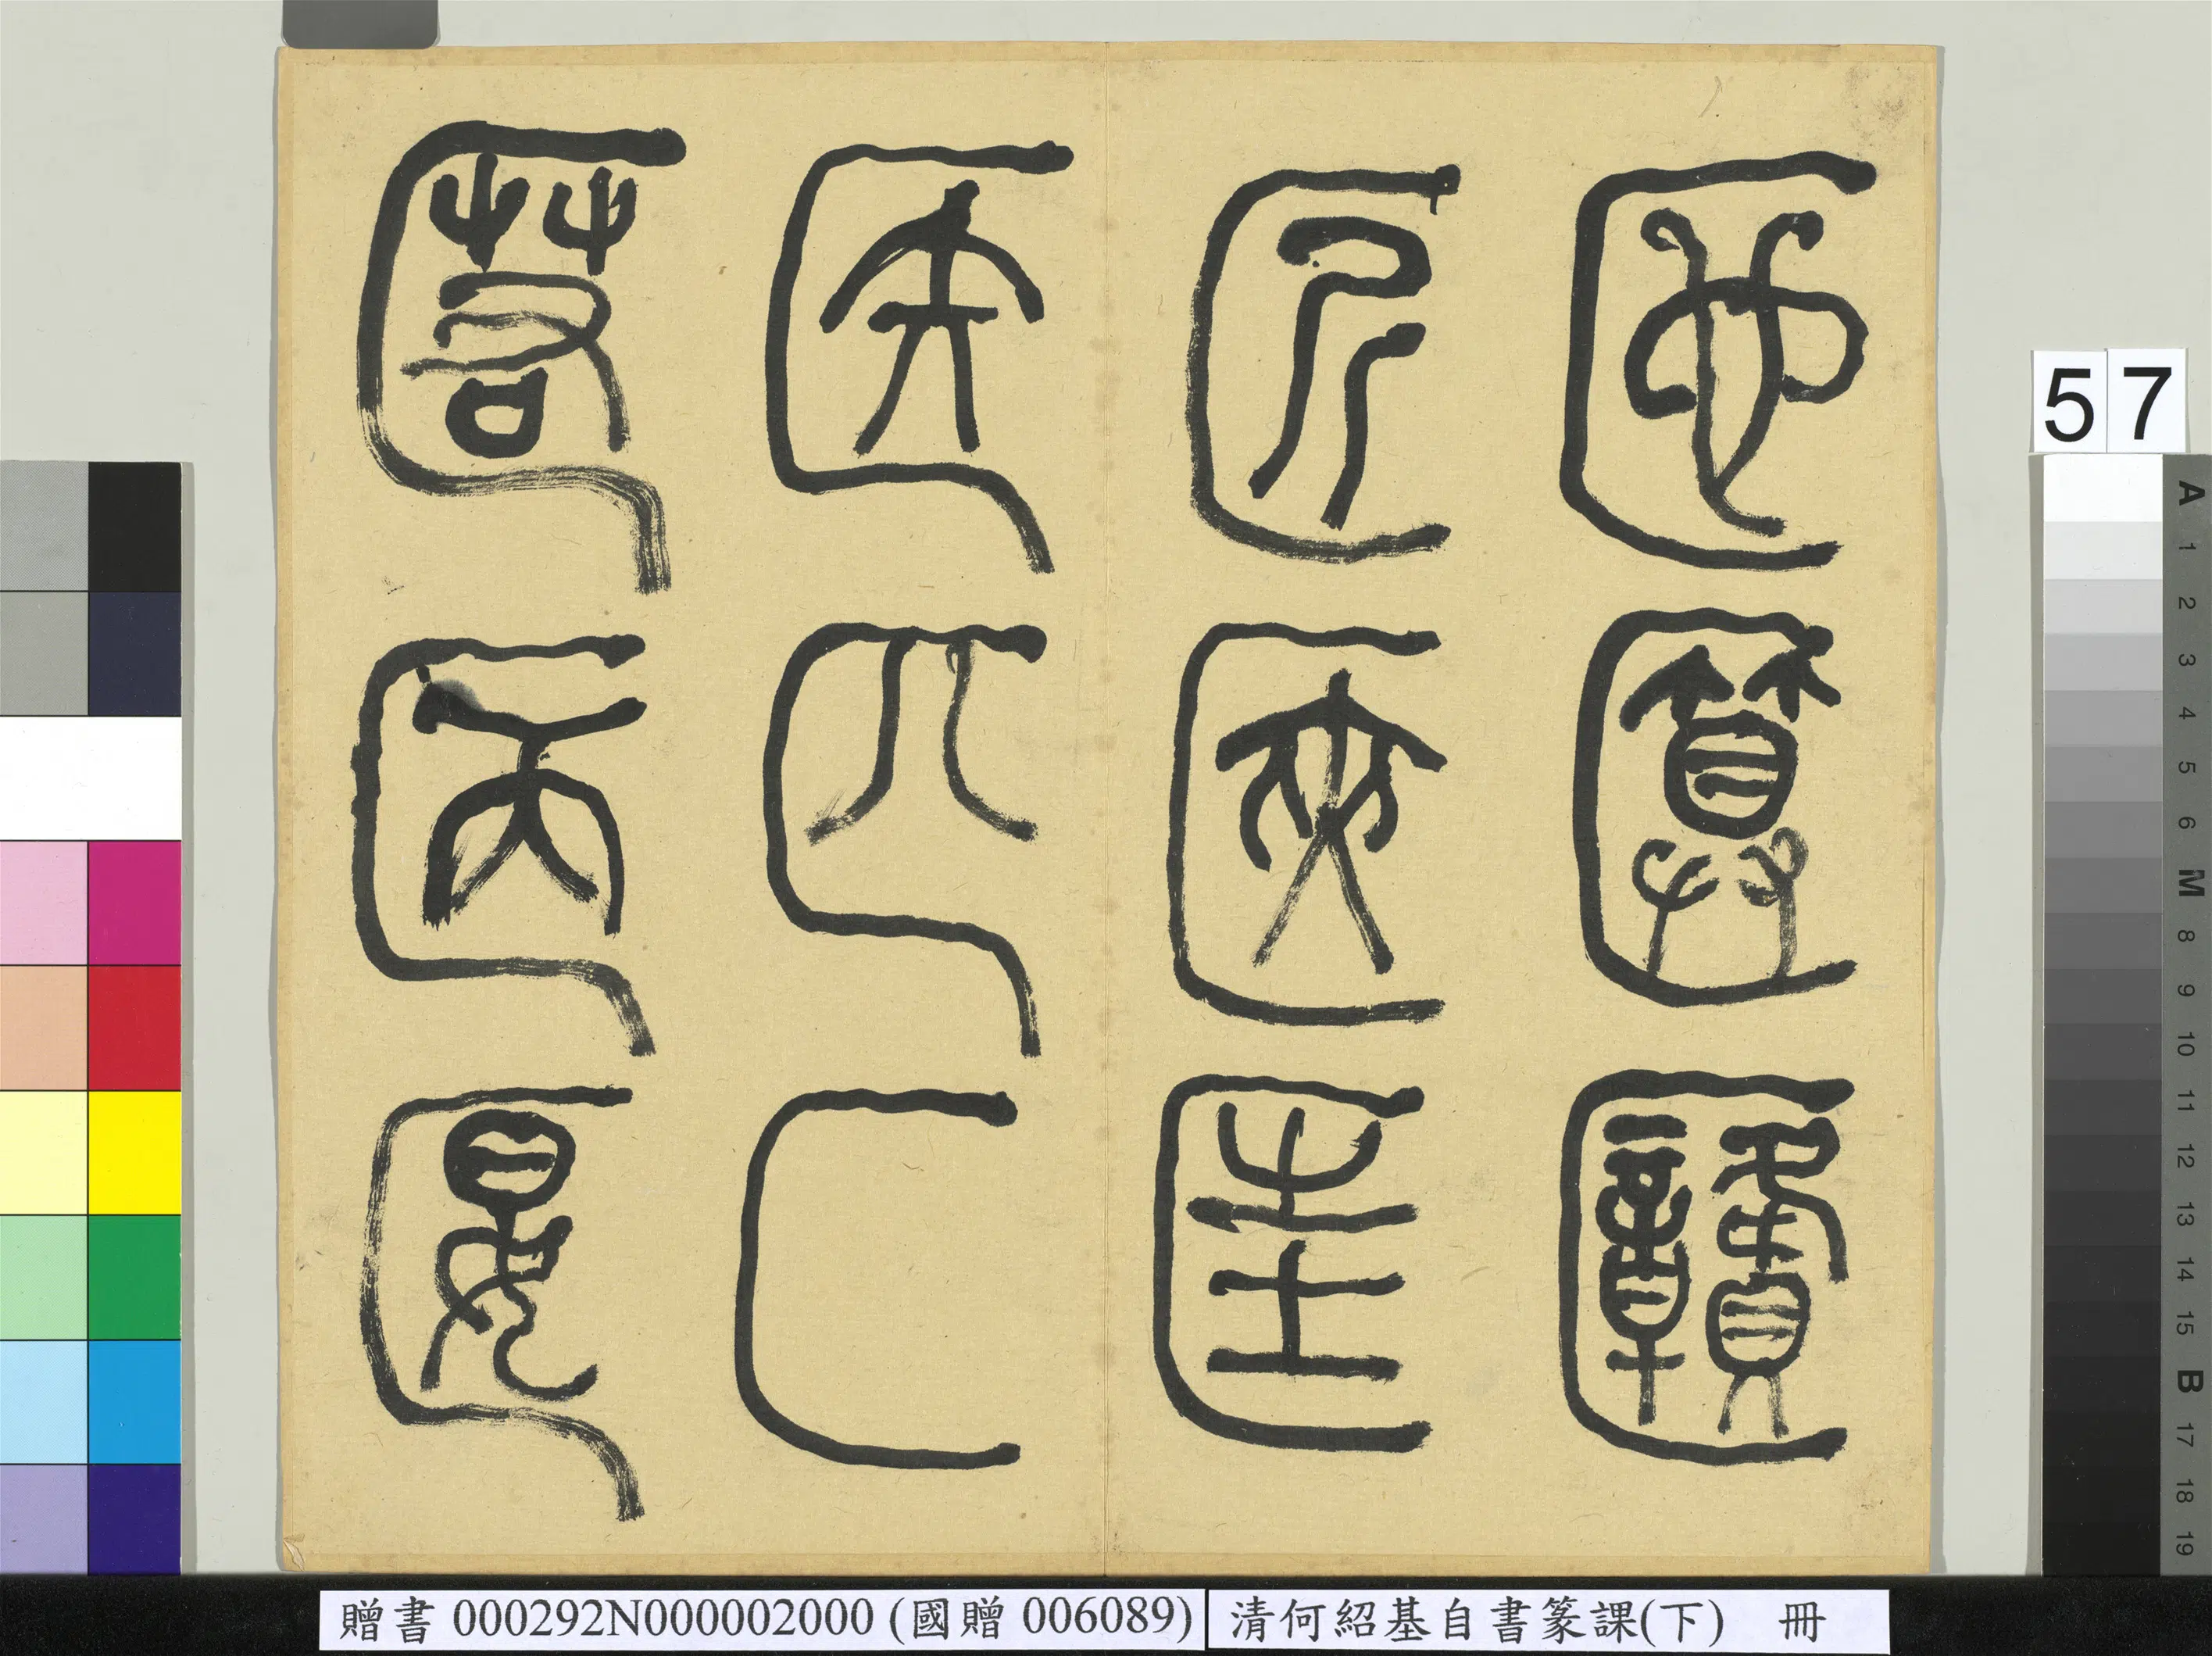 匿㔷匽
医匹匚
匠匧匡
匜匴㔶
57
A 1 2 3 4 5 6 M 8 9 10 11 12 13 14 15 B 17 18 19
贈書 000292N000002000 (國贈 006089)
清何紹基自書篆課(下) 冊